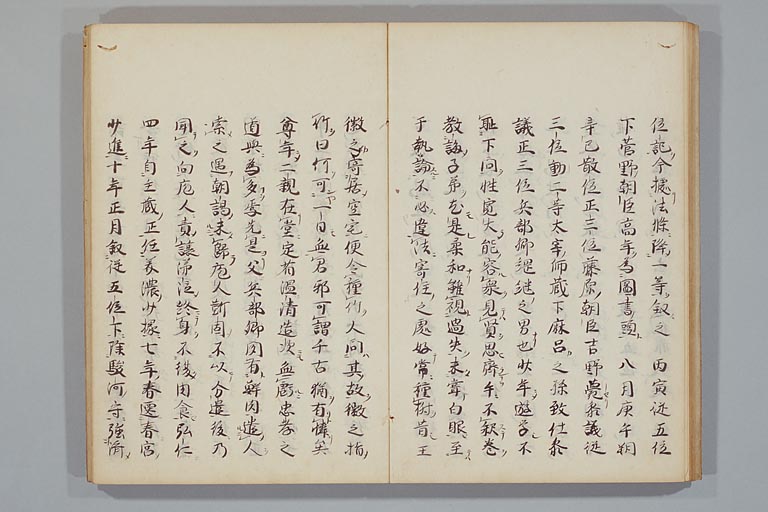 位記今據法條降一等叙之丙寅從五位
下菅野朝臣高年為圖書頭八月庚午朔
辛巳散位正三位藤原朝臣吉野薨参議從
三位勳二等太宰帥蔵下麻呂之孫致仕参
議正三位兵部卿綱継之男也少年遊学不
耻下問性寛大能容衆見賢思齊手不釈巻
教誨子弟尤是柔和雖視過失未嘗白眼至
于執論不必違法寄住之處好常種樹昔王
徽之寄居空宅便令種竹人問其故徽之指
竹曰何可一日無君邪可謂千古猶有懐矣
尊年二親在堂定省温清造次無虧忠孝之
道與為多焉先是父兵部卿因有鮮肉遣人
索之遇朝謁未歸庖人断固不以分遺後乃
聞之向庖人責譲涕泣終身不復肉食弘仁
四年自主蔵正任美濃少掾七年春遷春宮
少進十年正月叙從五位下除駿河守強濟